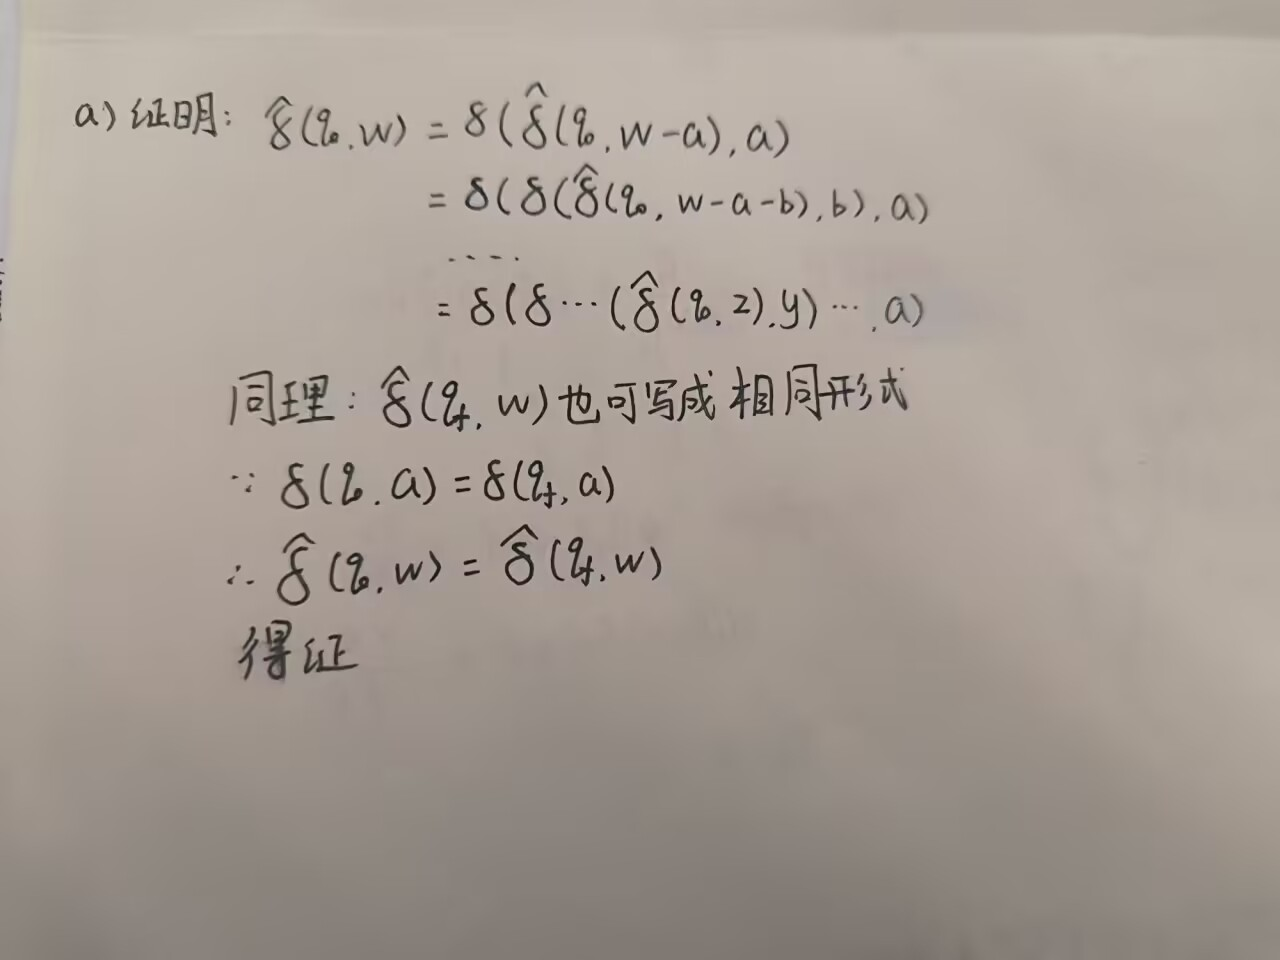 a) 证明: δ̂(q₀, w) = δ(δ̂(q₀, w-a), a)
= δ(δ(δ̂(q₀, w-a-b), b), a)
....
= δ(δ…(δ̂(q₀, z), y)…, a)
同理: δ̂(q_f, w) 也可写成 相同形式
∵ δ(q₀, a) = δ(q_f, a)
∴ δ̂(q₀, w) = δ̂(q_f, w)
得证